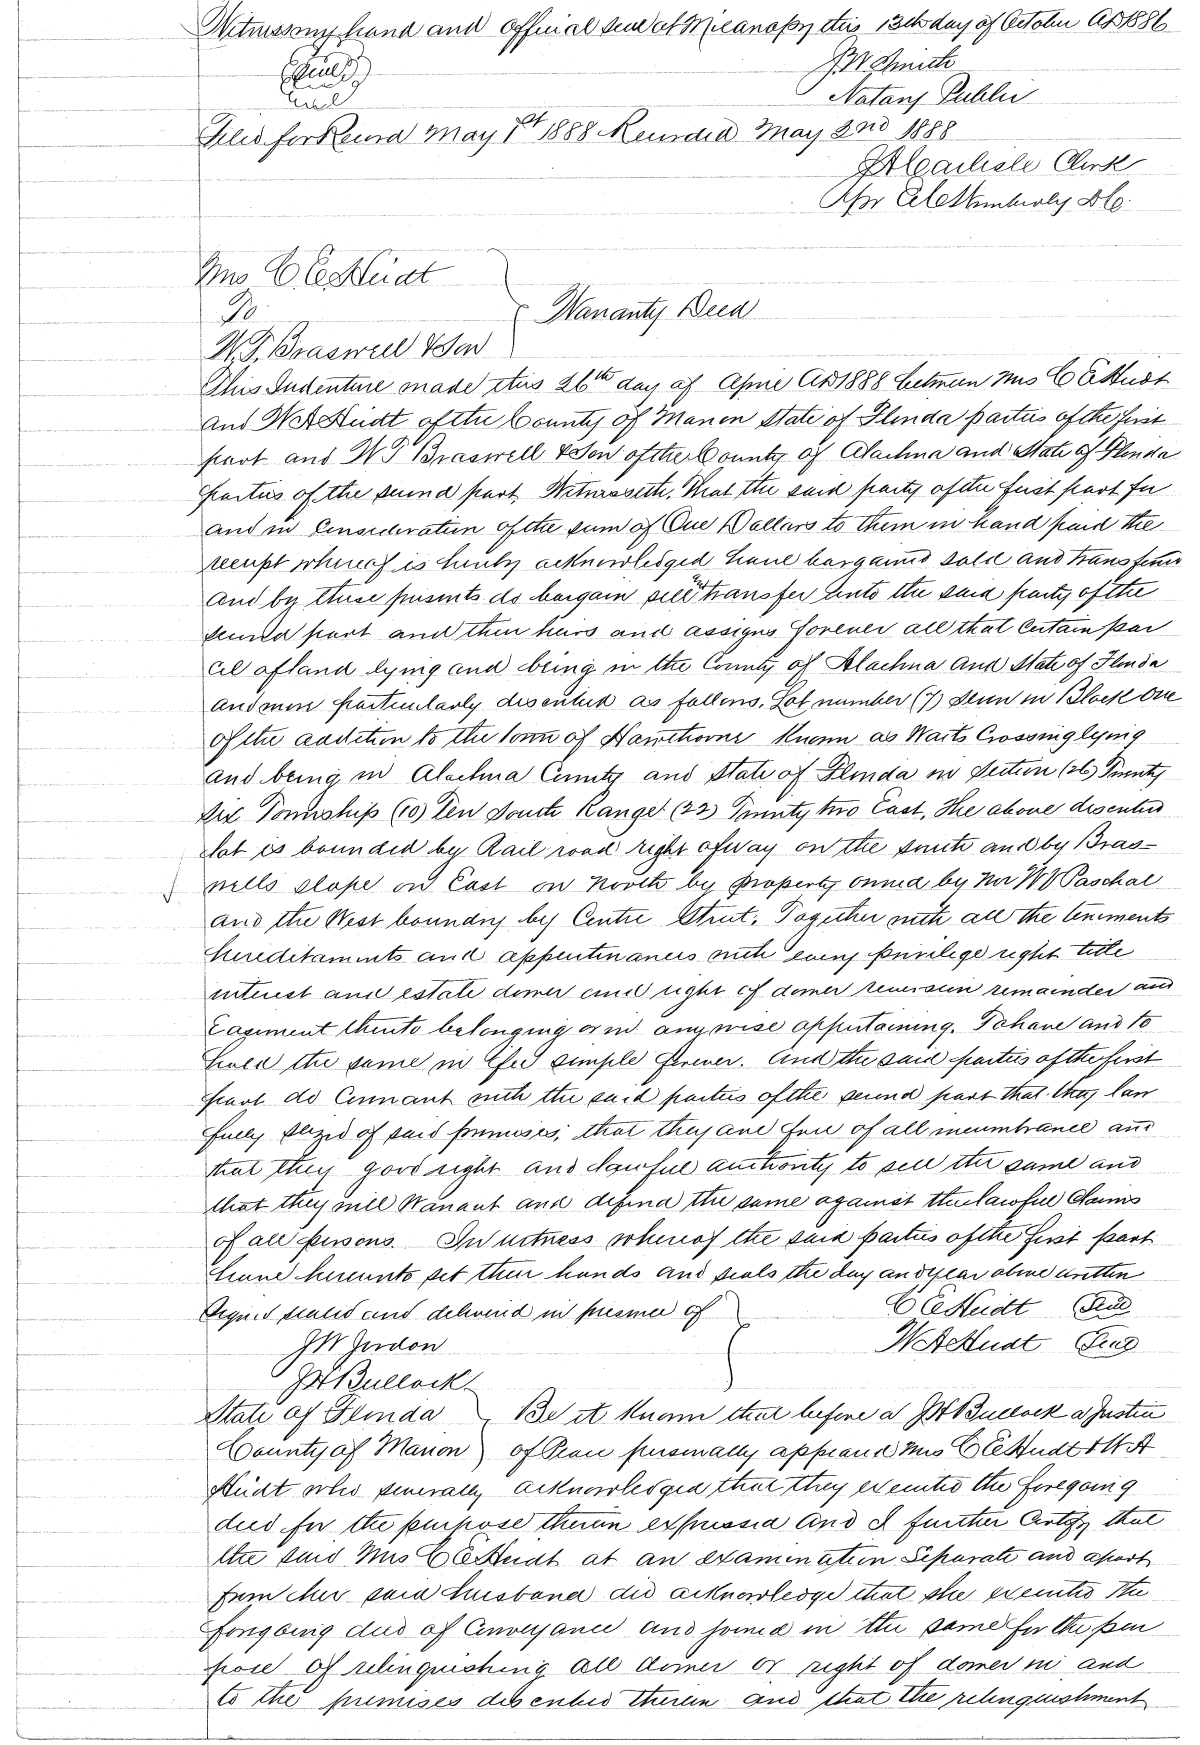 Witness my hand and official seal at Micanopy this 13th day of October AD 1886
J W Smith
Seal
Notary Public
Filed for Record May 1st 1888 Recorded May 2nd 1888
Carlisle Clerk
Per DC.
Mrs C E Heidt
To
Warranty Deed
W. J. Braswell & Son
This Indenture made this 26th day of April AD 1888 between Mrs C E Heidt
and W A Heidt of the County of Marion State of Florida parties of the first
part and W J Braswell & Son of the County of Alachua and State of Florida
parties of the second part, Witnesseth, That the said party of the first part for
and in Consideration of the sum of One Dollars to them in hand paid the
receipt whereof is hereby acknowledged have bargained sold and transferred
and by these presents do bargain sell & transfer unto the said party of the
second part and their heirs and assigns forever all that Certain par
cel of land lying and being in the County of Alachua and State of Florida
and more particularly described as follows, Lot number (7) Seven in Block One
of the addition to the town of Hawthorne Known as Waits Crossing lying
and being in Alachua County and State of Florida in Section (26) Twenty
Six Township (10) Ten South Range (22) Twenty two East, The above described
lot is bounded by Rail road right of way on the south and by Bras-
wells slope on East on North by property owned by Mr W J Paschal
and the West boundry by Centre Street, Together with all the tenements
hereditaments and appertinances with every privilege right title
interest and estate dower and right of dower reversion remainder and
Easement thereto belonging or in anywise appertaining. To have and to
hold the same in fee simple forever. And the said parties of the first
part do Convnant with the said parties of the second part that they law
fully siezed of said premises; that they are free of all incumbrance and
that they good right and lawful authority to sell the same and
that they will Warrant and defend the same against the lawful Claims
of all persons. In witness whereof the said parties of the first part
have hereunto set their hands and seals the day and year above written
Signed sealed and delivered in presence of C E Heidt Seal
J W Jordon W A Heidt Seal
J H Bullock
State of Florida Be it Known that before a J H Bullock a Justice
County of Marion of Peace personally appeared Mrs C E Heidt & W A
Heidt who severally acknowledged that they executed the foregoing
deed for the purpose therein expressed And I further Certify that
the said Mrs C E Heidt at an examination Separate and apart
from her said husband did acknowledge that she executed the
foregoing deed of Conveyance and joined in the same for the pur
pose of relinquishing all dower or right of dower in and
to the premises described therein and that the relinquishment